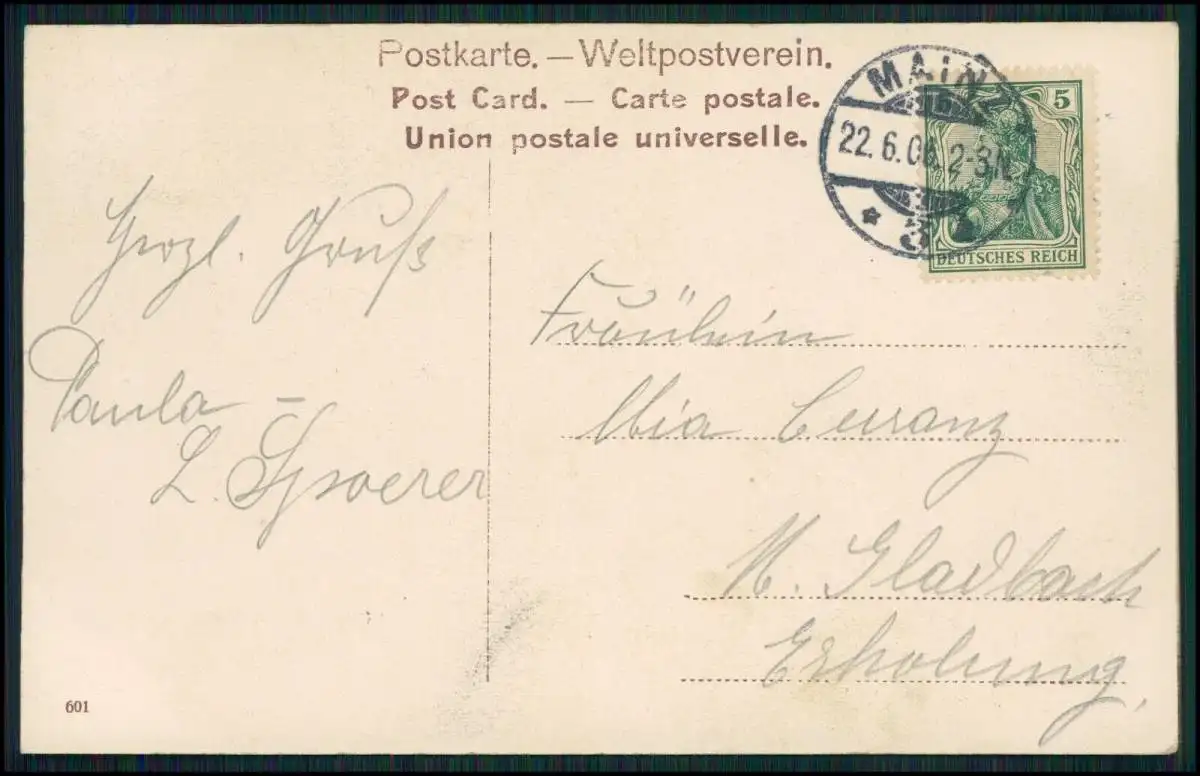 Postkarte. — Weltpostverein.
Post Card. — Carte postale.
Union postale universelle.
MAINZ
22.6.06. 2-3N.
* 3
5
DEUTSCHES REICH
Herzl. Gruß
Paula –
L. Spoerer
Fräulein
Mia
M. Gladbach
Erholung,
601